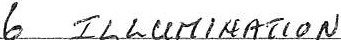 6 ILLUMINATION